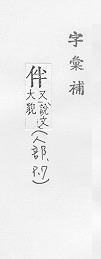 字彙補
伴
又說文
大貌
(人部、P.7)